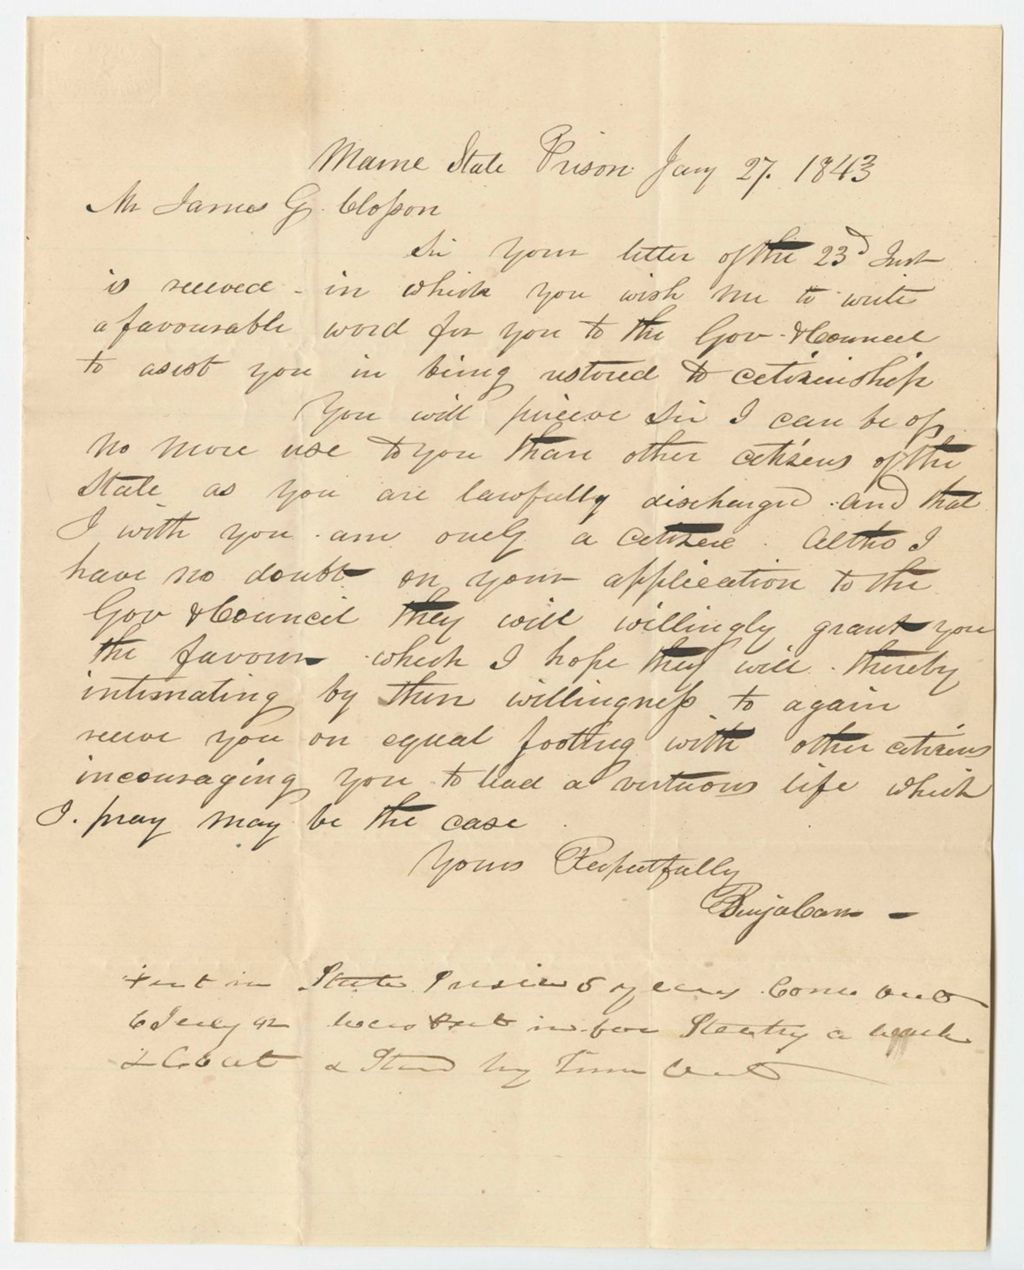 Maine State Prison Jany 27. 1843
Mr James G. Closson
Sir Your letter of the 23d Inst
is received - in which you wish me to write
a favourable word for you to the Gov & Council
to assist you in being restored to citizenship
You will pircive Sir I can be of
no more use to you than other citizens of the
State as you are lawfully discharged and that
I with you am only a citizen. Altho I
have no doubt on your application to the
Gov & Council they will willingly grant you
the favour which I hope they will. thereby
intimating by their willingness to again
receive you on equal footing with other citizens
incouraging you to lead a virtuous life which
I. pray may be the case
Yours Respectfully
Benja Carr
in State Prison 5 years Come out
6 July 42 was in for a
& Coat & my Time out